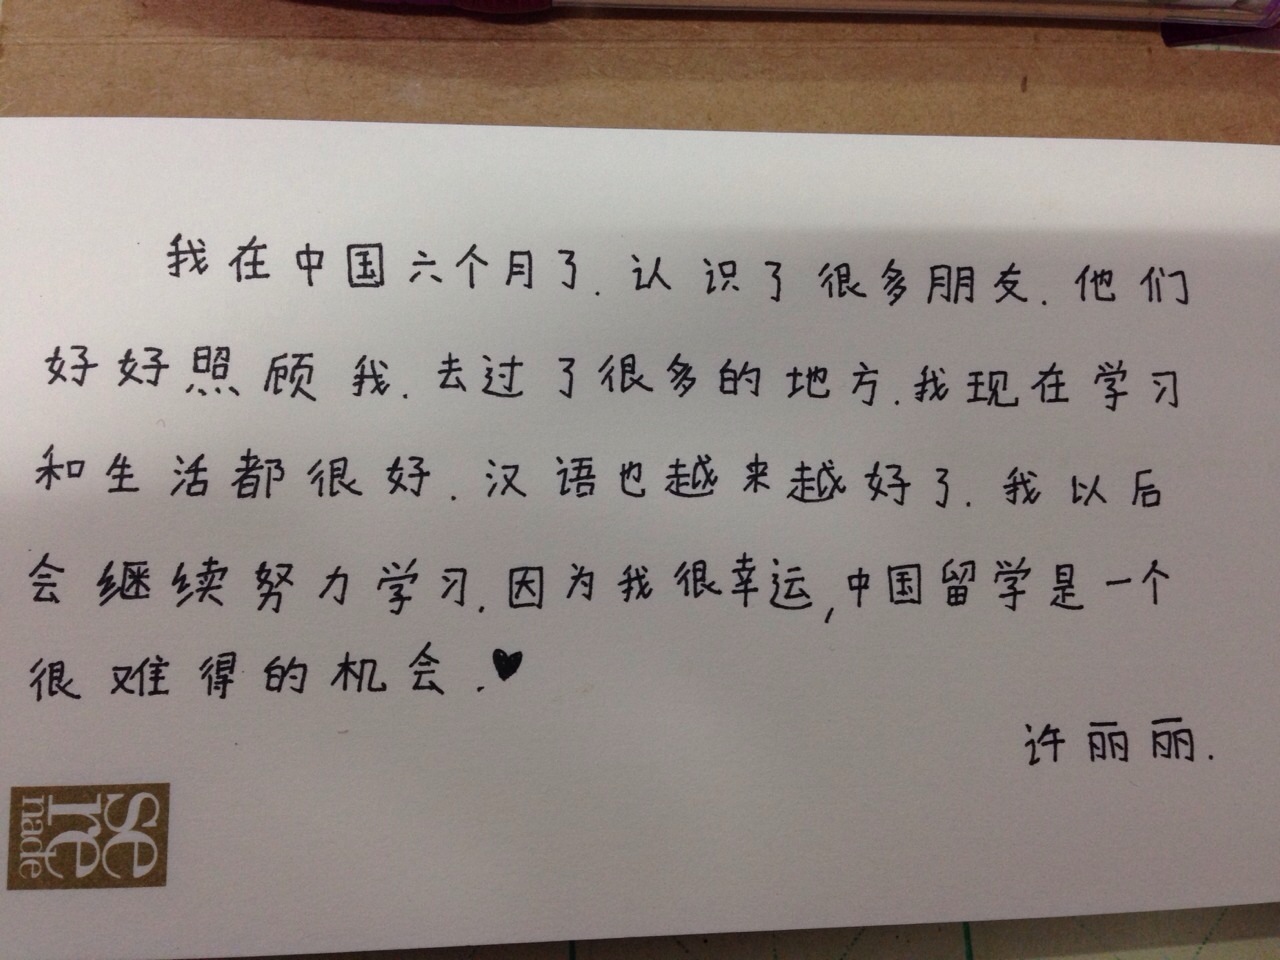 我在中国六个月了.认识了很多朋友.他们
好好照顾我.去过了很多的地方.我现在学习
和生活都很好.汉语也越来越好了.我以后
会继续努力学习.因为我很幸运,中国留学是一个
很难得的机会.♥
许丽丽.
se
re
nade